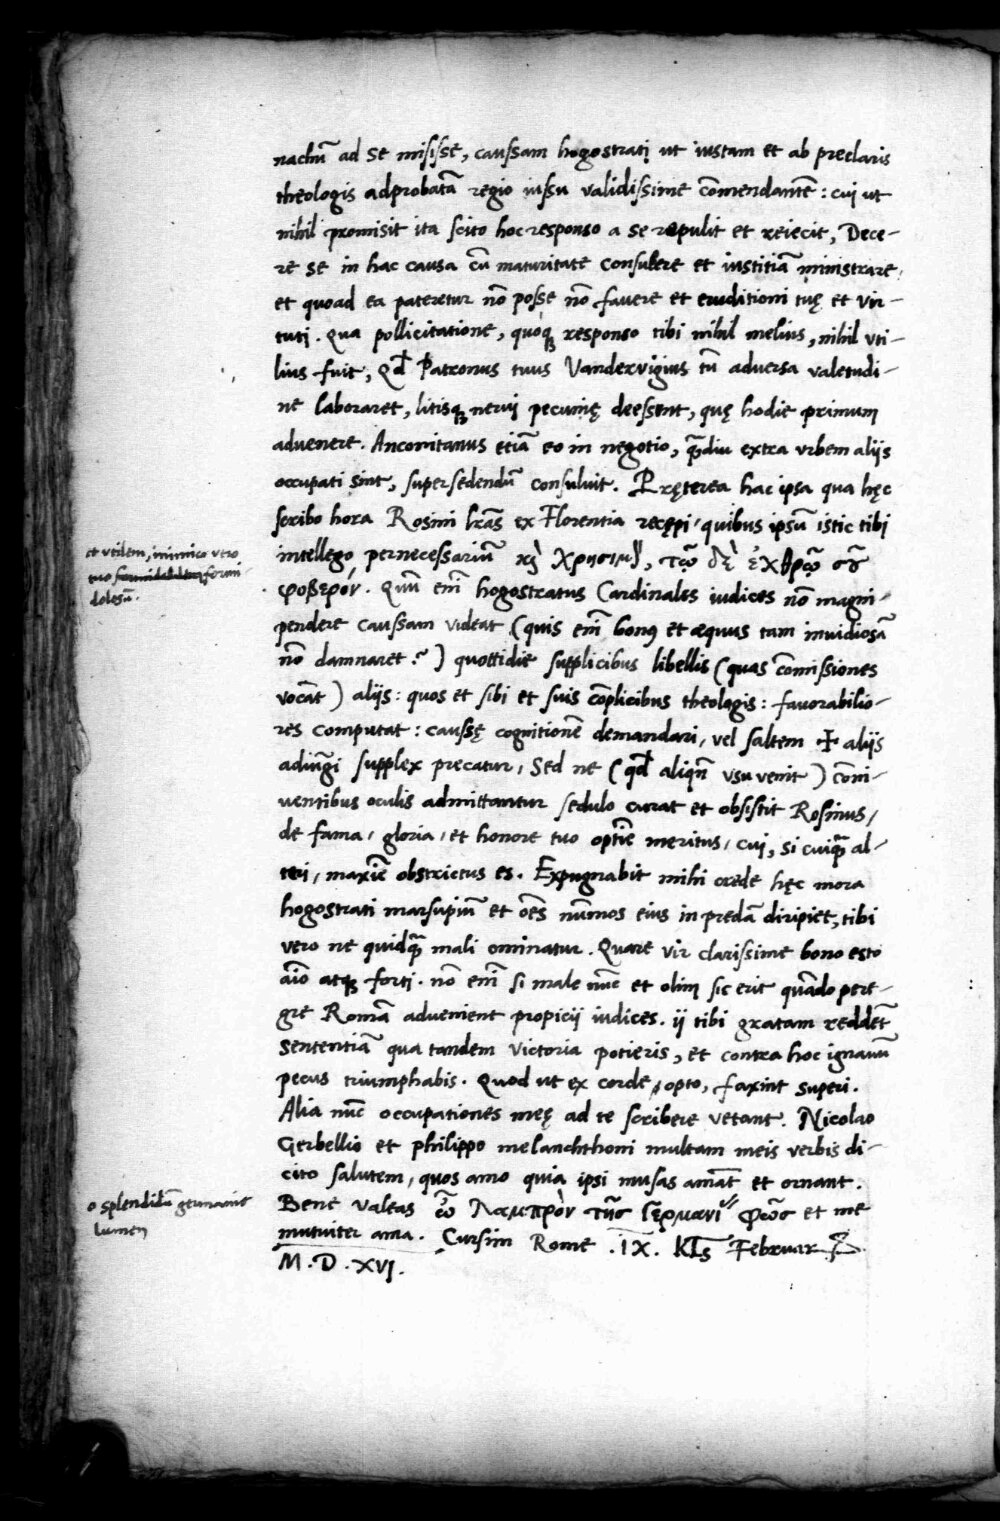 nachũ ad se misisse, caussam hogostrati ut iustam et ab preclaris
theologis adprobatã regio iussu validissime cõmendantẽ: cui ut
nihil promisit ita scito hoc responso a se repulit et reiecit, Dece-
re se in hac causa cũ maturitate consulere et iustitiã ministrare,
et quoad ea pateretur nõ posse nõ favere et eruditioni tuę et vir-
tuti. Qua pollicitatione, quoq; responso tibi nihil melius, nihil uti-
lius fuit, Qd Patronus tuus Vandervigius tũ adversa valetudi-
ne laboraret, litisq; nervi pecunię deessent, quę hodie primum
advenere. Anconitanus etiã eo in negotio, q̃diu extra urbem aliis
occupati sint, supersedendũ consuluit. Pręterea hac ipsa qua hęc
scribo hora Rosini lr̃as ex Florentia recępi, quibus ipsũ istic tibi
intellego pernecessariũ κὴ χρησιμὸ, τῶ δὲ ἐχθρῶ σῦ
φοβερόν. Quũ em̃ hogostratus Cardinales iudices nõ magni-
pendere caussam videat (quis em̃ bonus et æquus tam invidiosã
nõ damnaret?) quottidie supplicibus libellis (quas cõmissiones
vocãt) aliis: quos et sibi et suis cõplicibus theologis: favorabilio-
res computat: caussę cognitionẽ demandari, vel saltem ✢ aliis
adiũgi supplex precatur, Sed ne (qd aliqñ usu venit) cõni-
ventibus oculis admittantur sedulo curat et obsistit Rosinus,
de fama, gloria, et honore tuo optĩe meritus, cui, si cuiq̃ al-
teri, maxĩe obstrictus es. Expugnabit mihi crede hęc mora
hogostrati marsupiũ et oẽs nũmos eius in predã diripiet, tibi
vero ne quidq̃ mali ominatur. Quare vir clarissime bono esto
aĩo atq; forti. nõ em̃ si male nũc et olim sic erit quãdo pere-
gre Romã advenient propicii iudices. ii tibi gratam reddẽt
sententiã qua tandem victoria potieris, et contra hoc ignavũ
pecus triumphabis. Quod ut ex corde opto, faxint superi.
Alia nũc occupationes meę ad te scribere vetant. Nicolao
Gerbellio et philippo melanchthoni multam meis verbis di-
cito salutem, quos amo quia ipsi musas amãt et ornant.
Bene valeas ὦ Λαμπρὸν τῆς Γερμανι φῶς et me
mutuiter ama. Cursim Rome .IX. Kls Februar
M.D.XVI.
et utilem, inimico vero
tuo formidabilem formi-
dolosũ.
o splendidũ germanie
lumen